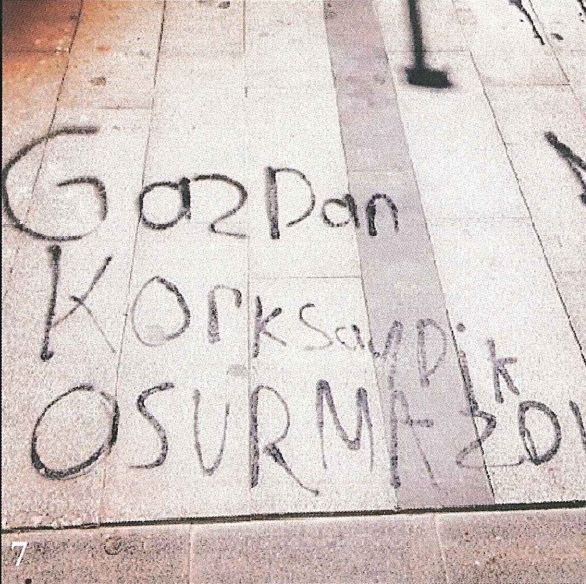 GazDan
KorksayDik
OSURMAZDI
7